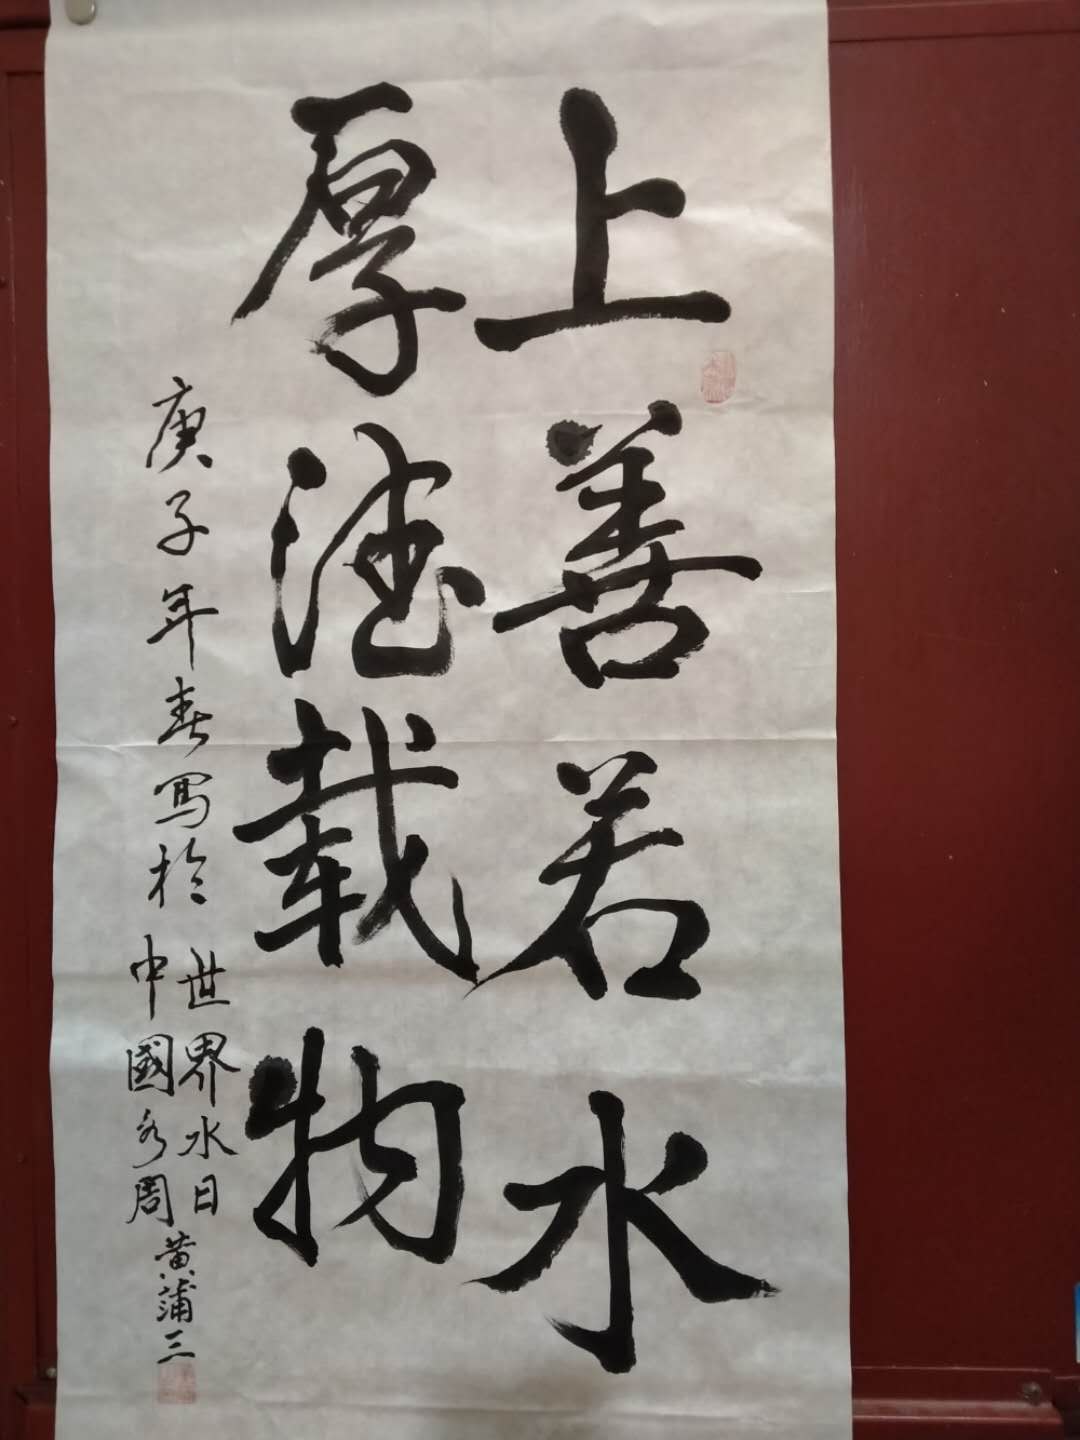 上善若水
厚德载物
庚子年春寫於
世界水日
中國水周
黄蒲三